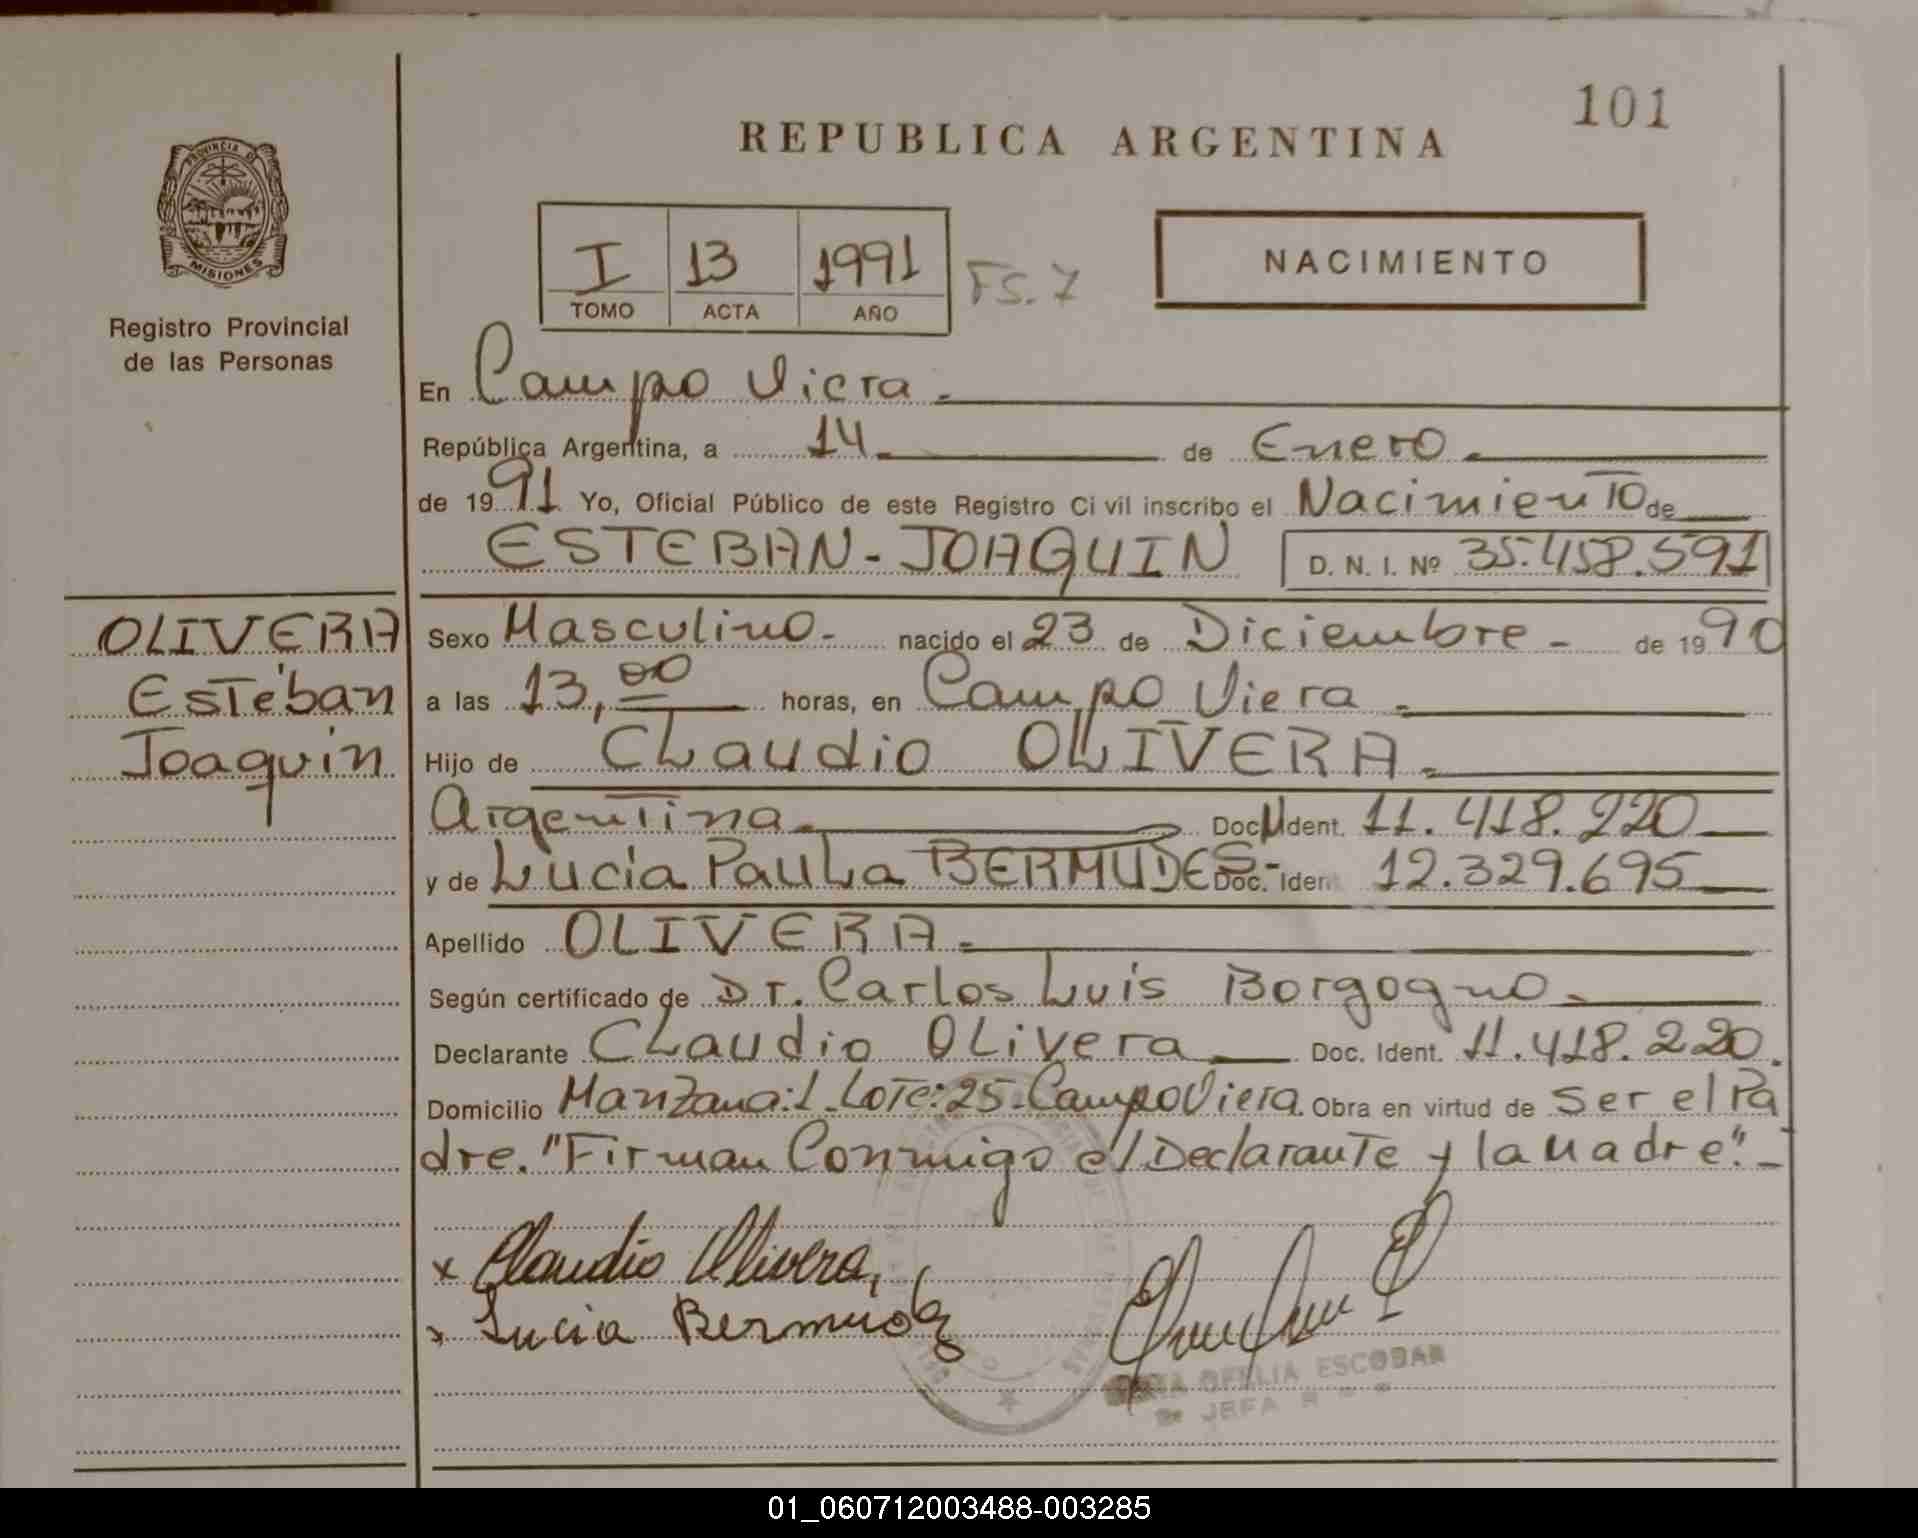 101
REPUBLICA ARGENTINA
PROVINCIA DE
MISIONES
Registro Provincial
de las Personas
I 13 1991 FS. 7
TOMO ACTA AÑO
NACIMIENTO
En Campo Viera.
República Argentina, a 14 de Enero
de 1991 Yo, Oficial Público de este Registro Civil inscribo el Nacimiento de
ESTEBAN-JOAQUIN D. N. I. Nº 35.458.591
OLIVERA
Esteban
Joaquin
Sexo Masculino.- nacido el 23 de Diciembre - de 1990
a las 13,00 horas, en Campo Viera.
Hijo de CLaudio OLIVERA.
Argentina. Doc. Ident. 11.418.220
y de Lucia PauLa BERMUDES.- Doc. Iden 12.329.695
Apellido OLIVERA.
Según certificado de Dr. Carlos Luis Borgogno.
Declarante CLaudio OLivera Doc. Ident. 11.418.220.
Domicilio Manzana:1.LoTe:25-Campo Viera. Obra en virtud de Ser el Pa
dre. "Firman Conmigo el Declarante y la Madre".-
x Claudio Olivera,
x Lucia Bermudez
OFELIA ESCOBAR
JEFA
01_060712003488-003285